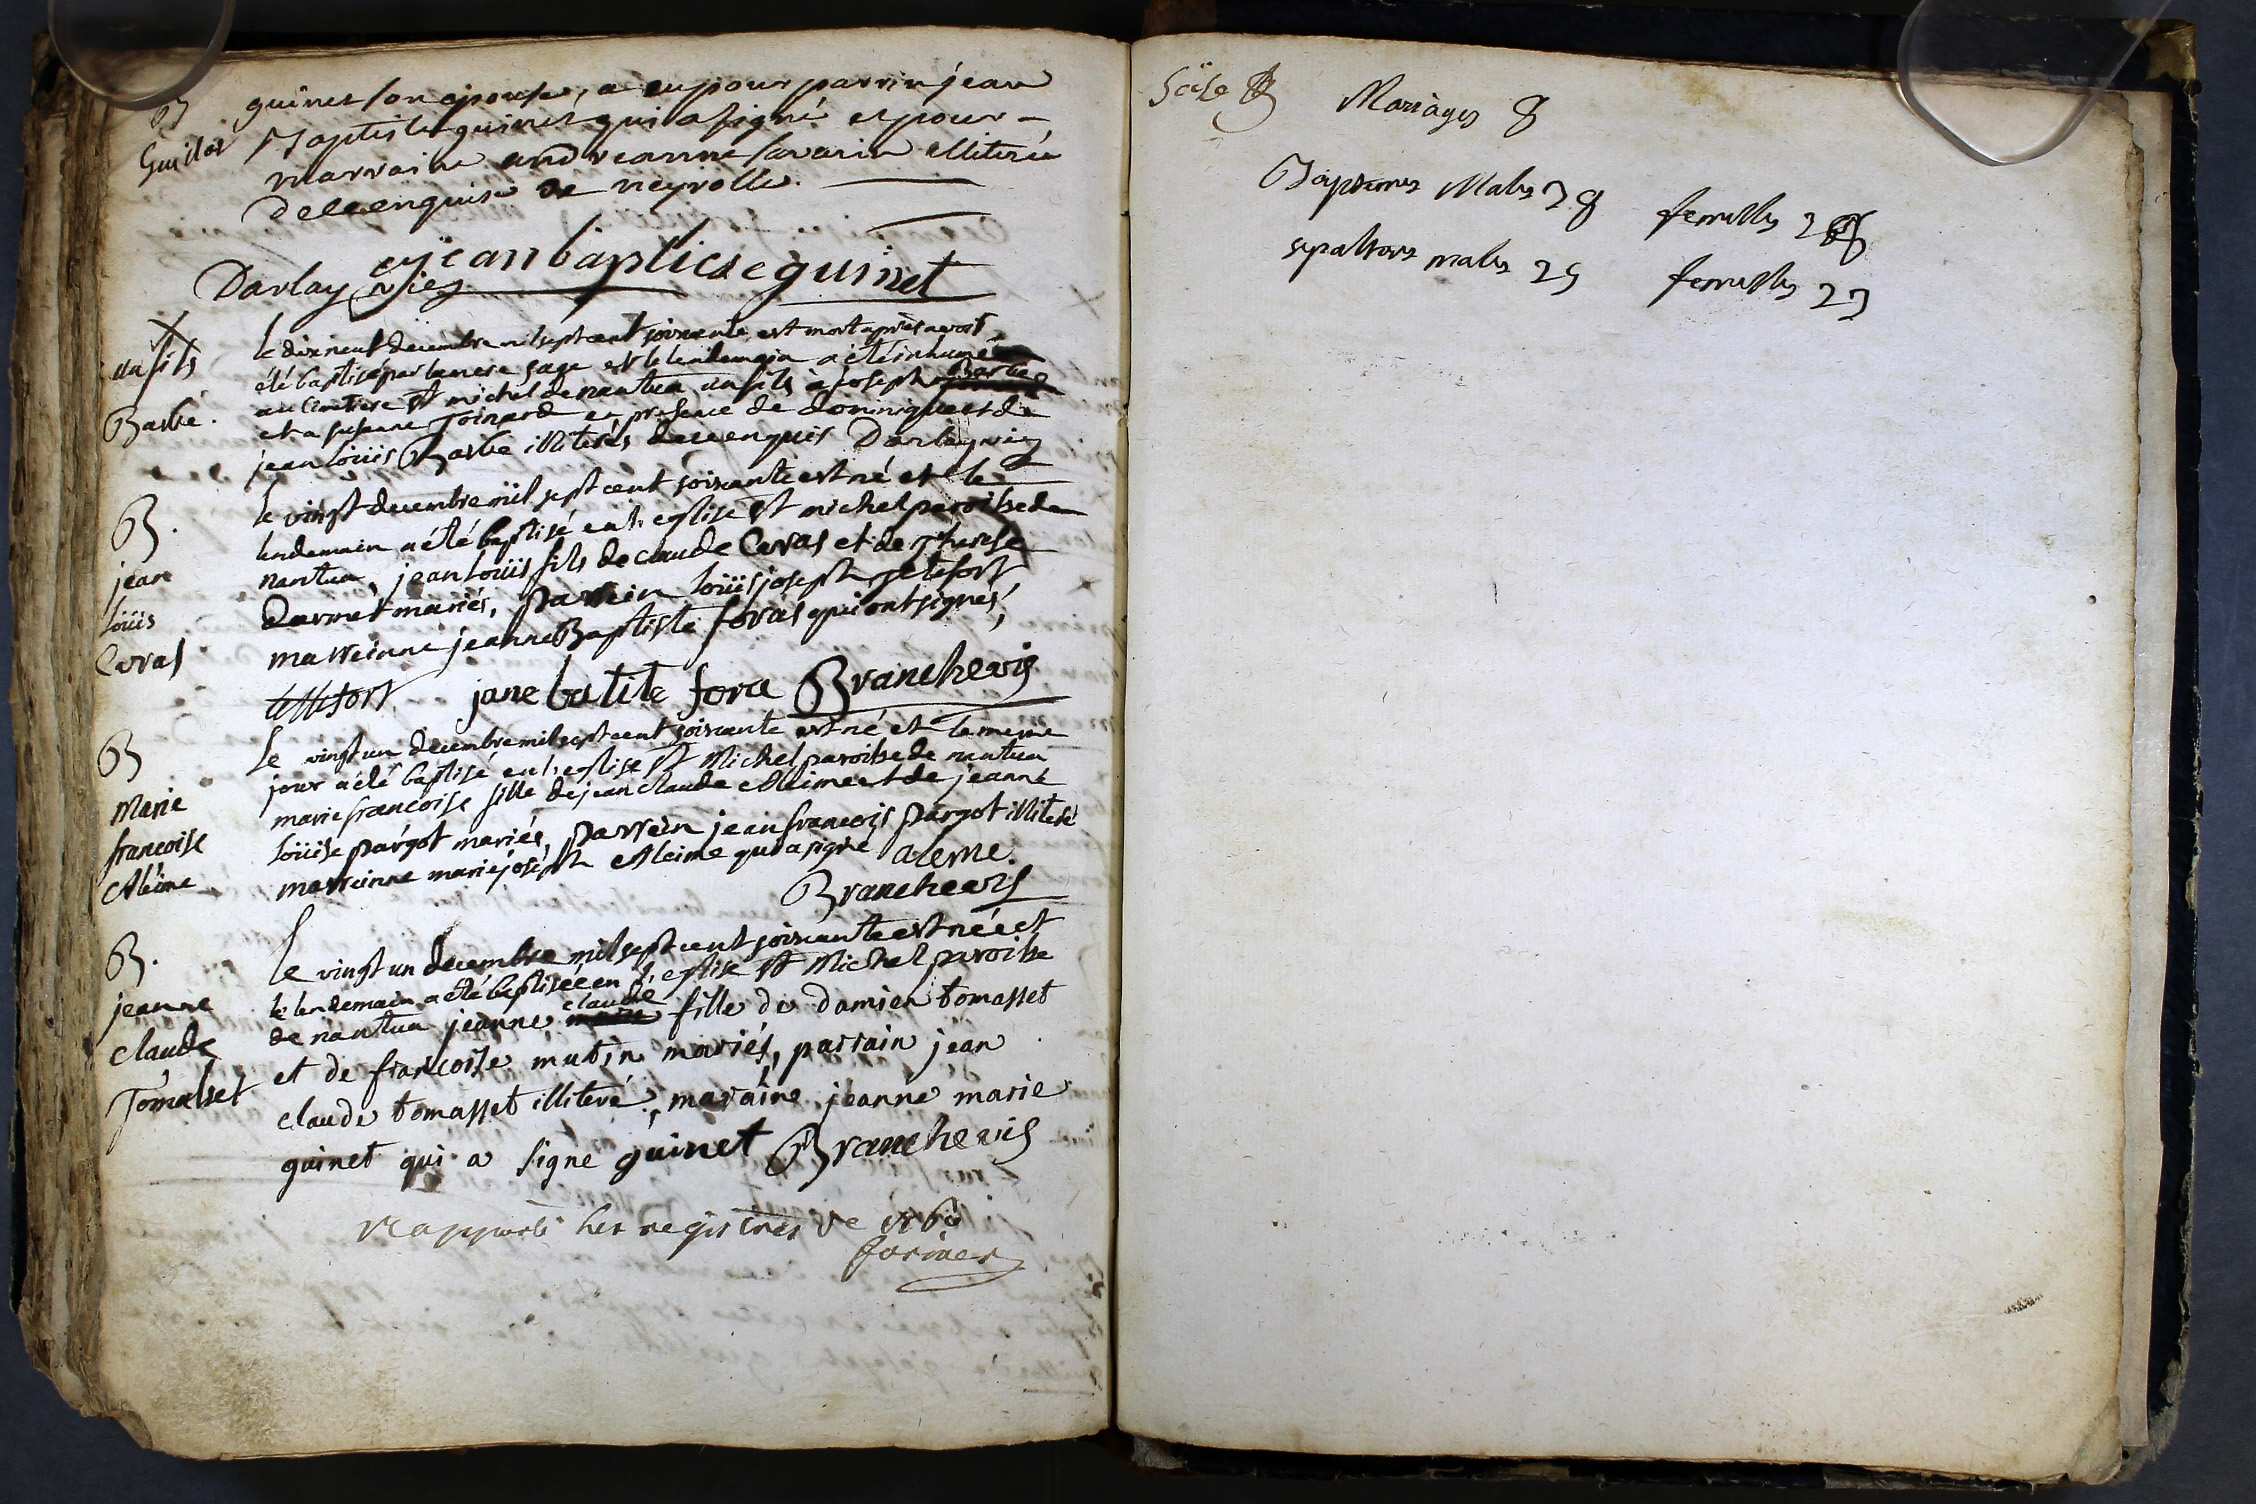 B
Guillot
guinet son épouse, a eu pour parrin jean
Baptiste guinet qui a signé et pour
marraine andreanne savarin illiterée
de ce enquise de neyrolle.
jean baptiste guinet
Darlay vic
un fils
Barbe.
le dix neuf decembre mil sept cent soixante est mort après avoit
été baptisé par la mere sage et le lendemain a été inhumé
au cimetiere St michel de nantua un fils à joseph Barbe
et a susanne Joinard en presence de dominique et de
jean loüis Barbe illiterés de ce enquis Darlay vic
B.
jean
loüis
Cavas
le vingt decembre mil sept cent soixante est né et le
lendemain a été baptisé en l'eglise St michel paroisse de
nantua, jean loüis fils de claude Cavas et de therese
Darmet mariés, parrein loüis joseph jetefort
marreinne jeanne Baptiste foras qui ont signés,
jane batite fora Branche vic
B
Marie
francoise
Aléime
Le vingt un decembre mil sept cent soixante est né et le meme
jour a été baptisé en l'eglise St Michel paroisse de nantua
marie francoise fille de jean claude Aleime et de jeanne
loüise pargot mariés, parrein jean francois pargot illiteré
marreinne marie joseph Aleime qui a signé aleme.
Branche vic
B.
jeanne
claude
Tomasset
Le vingt un decembre mil sept cent soixante est née et
le lendemain a été baptisée en l'eglise St Michel paroisse
de nantua jeanne claude fille de damien tomasset
et de francoise mutin mariés, parrain jean
claude tomasset illiteré, maraine jeanne marie
guinet qui a signe guinet Branche vic
rapporté les registres de
Mariages 8
Baptemes Males 28 femelles 2
sepultures males 25 femelles 23